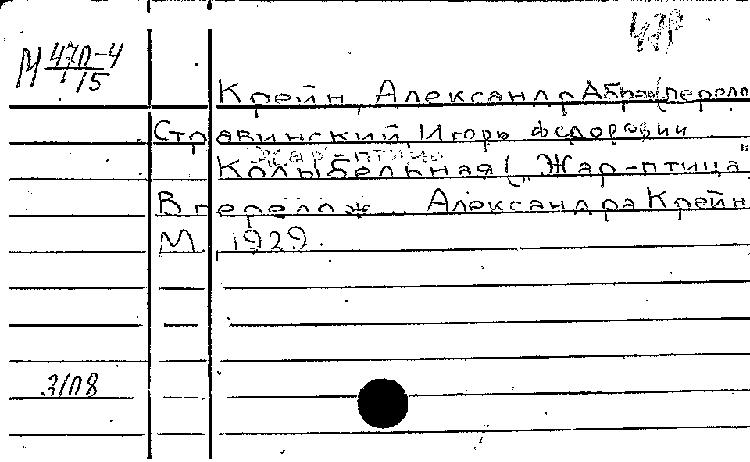 М 470-4
1/15
Крейн, Александр Абра (перело
Стравинский, Игорь Федорович
Жар-птица
Колыбельная („Жар-птица"
В перелож. Александра Крейн
М. 1929.
3108